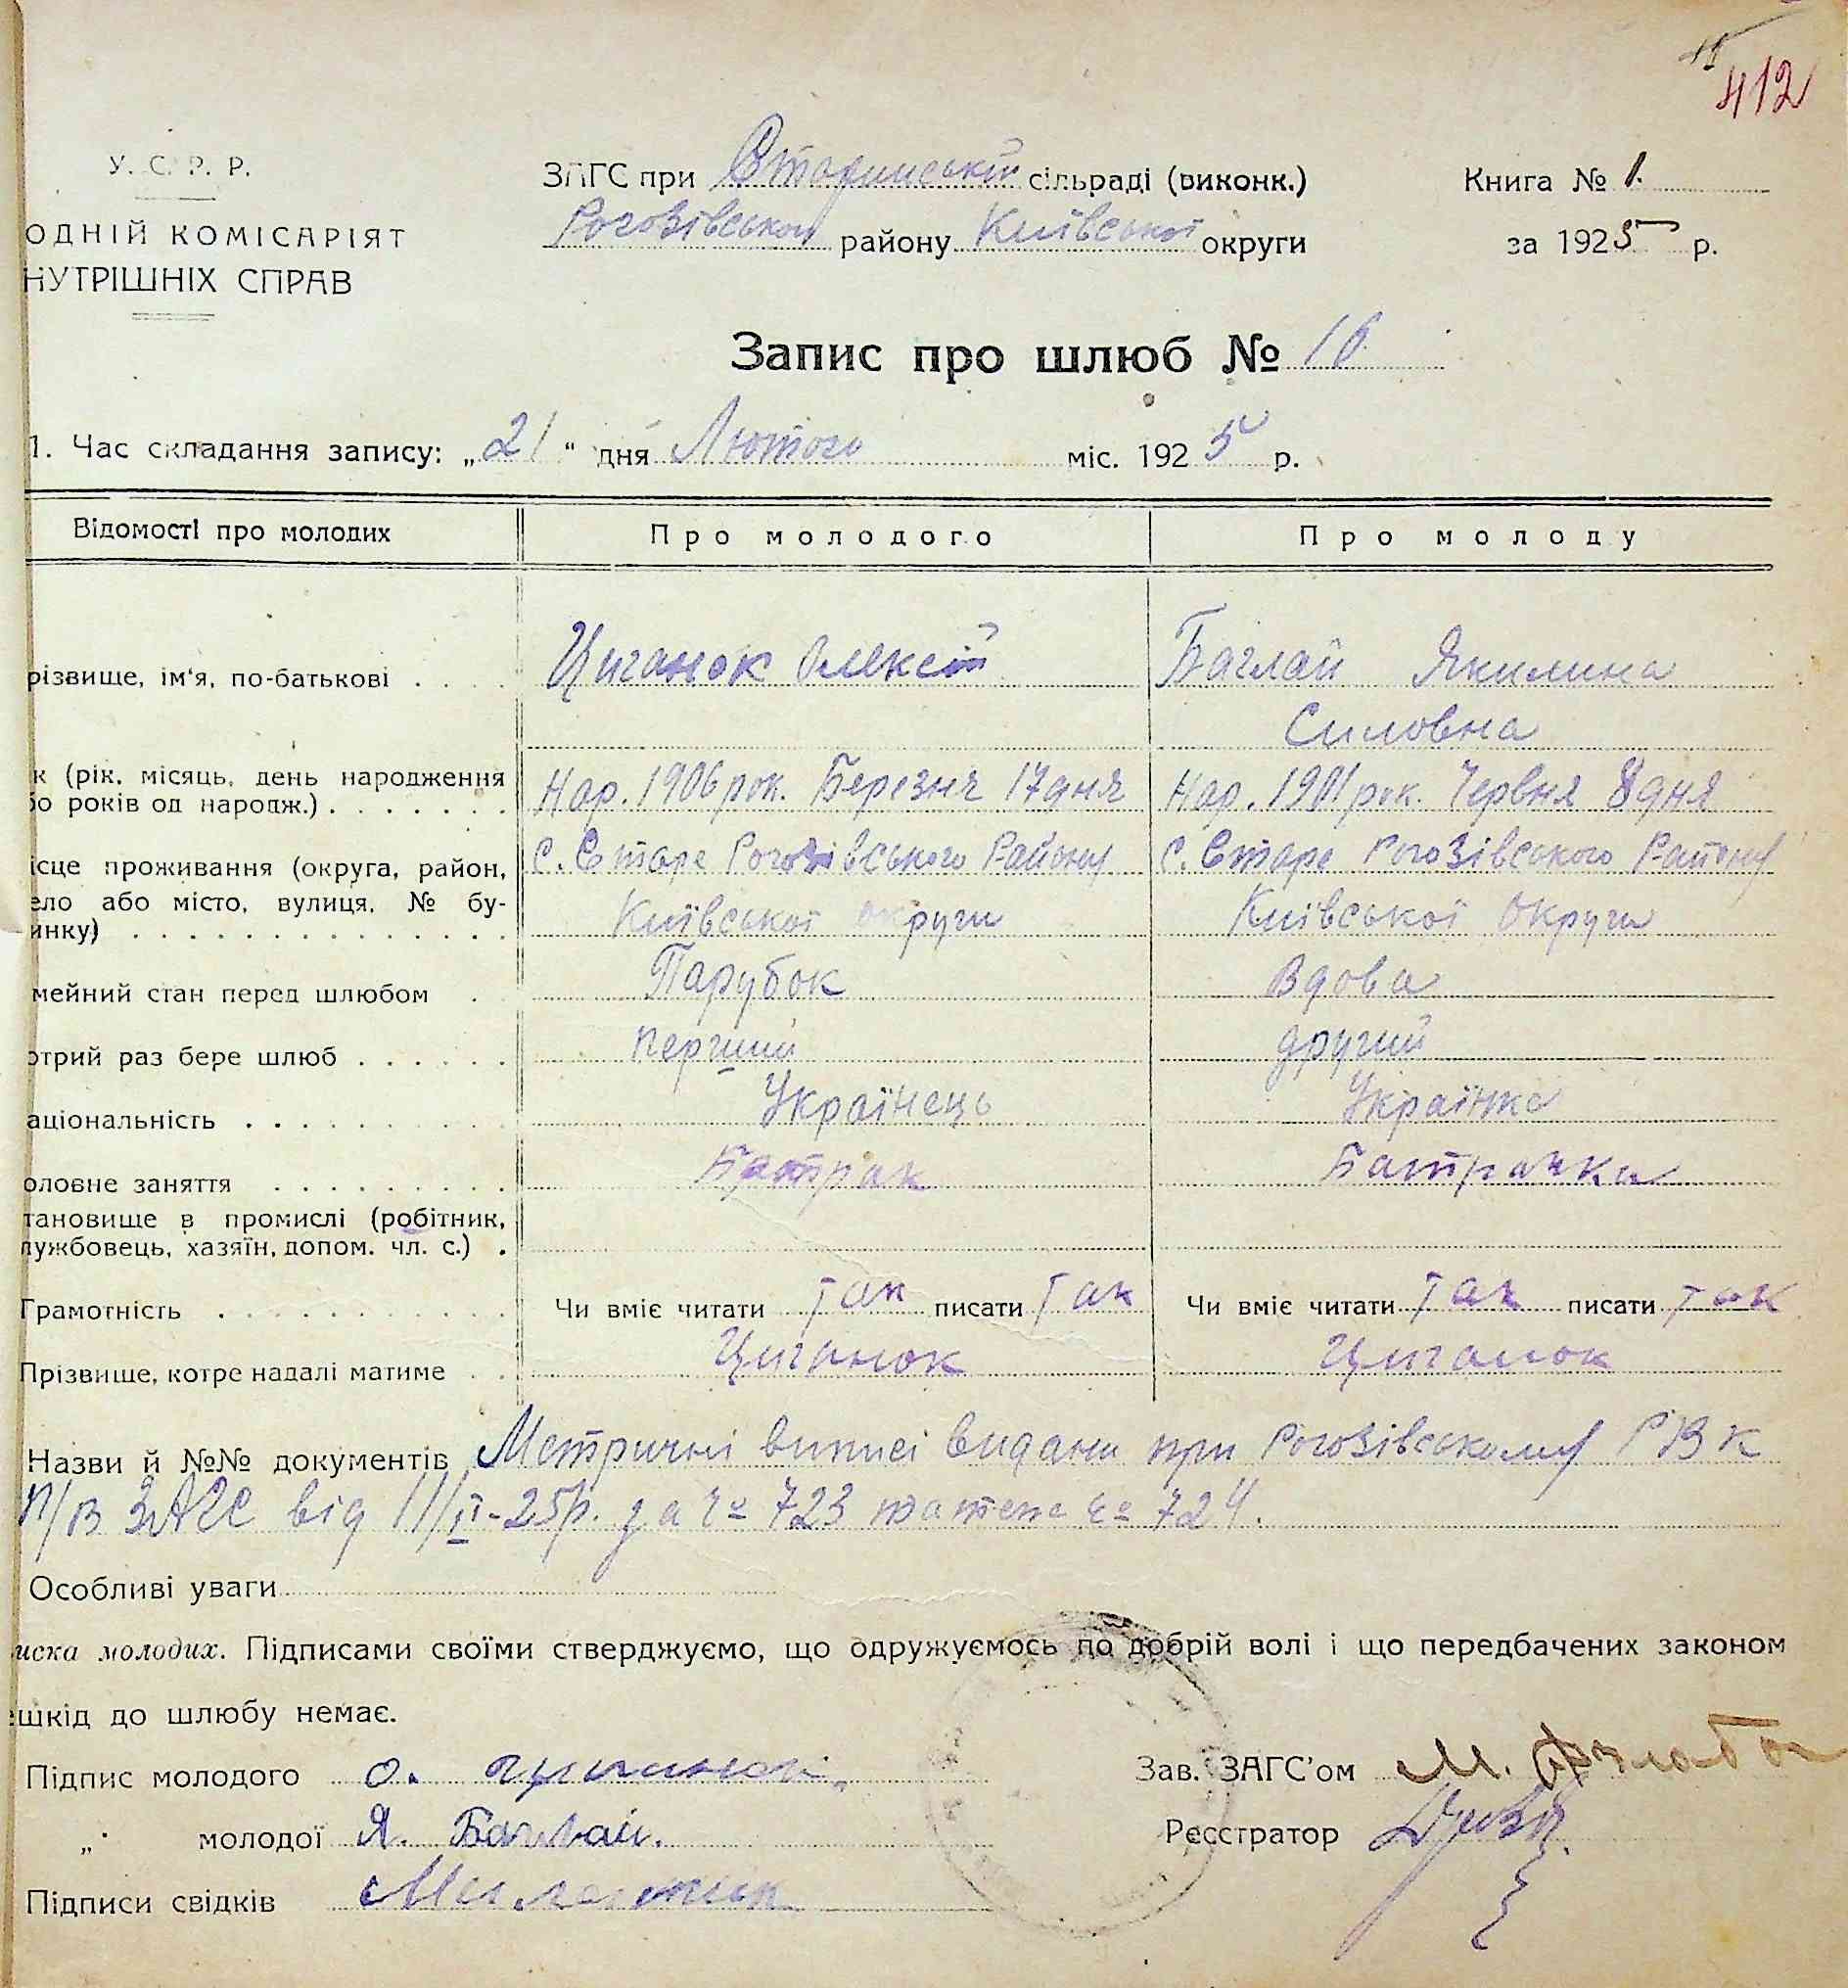 412
У. С. Р. Р.
ОДНІЙ КОМІСАРІЯТ
НУТРІШНІХ СПРАВ
ЗАГС при Старинській сільраді (виконк.)
Рогозівського району Київської округи
Книга № 1.
за 1925 р.
Запис про шлюб № 16
1. Час складання запису: „21“ дня Лютого міс. 1925 р.
Відомості про молодих Про молодого Про молоду
різвище, ім‘я, по-батькові . . . . Циганок Олексій Баглай Якилина
Силовна
к (рік, місяць, день народження
бо років од народж.) . . . . . . . Нар. 1906 рок. Березня 17 дня Нар. 1901 рок. Червня 8 дня
ісце проживання (округа, район, с. Старе Рогозівського Району с. Старе Рогозівського Району
ело або місто, вулиця, № бу-
инку) . . . . . . . . . . . . . . Київської округи Київської Округи
мейний стан перед шлюбом . Парубок Вдова
отрий раз бере шлюб . . . . . . перший другий
аціональність . . . . . . . . . . Українець Українка
оловне заняття . . . . . . . . . Батрак Батрачка
тановище в промислі (робітник,
лужбовець, хазяїн, допом. чл. с.) .
Грамотність . . . . . . . . . . . Чи вміє читати так писати так Чи вміє читати так писати так
Прізвище, котре надалі матиме . . Циганок Циганок
Назви й №№ документів Метричні виписі видани при Рогозівському РВК
П/В ЗАГС від 11/II-25р. за № 723 та теж № 724.
Особливі уваги
иска молодих. Підписами своїми стверджуємо, що одружуємось по добрій волі і що передбачених законом
ешкід до шлюбу немає.
Підпис молодого О. Циганок.
„ молодої Я. Баглай.
Підписи свідків
Зав. ЗАГС’ом М.
Реєстратор